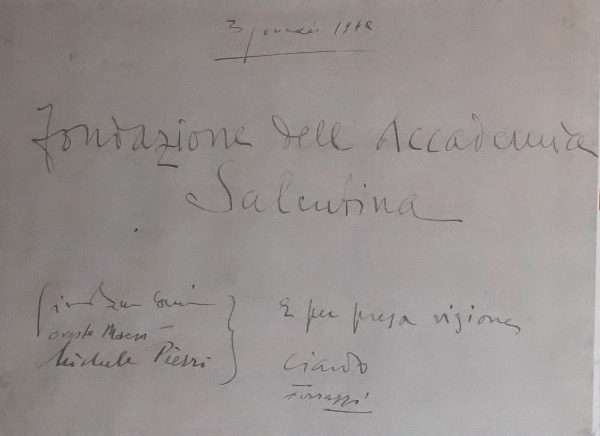 3 gennaio 1948
Fondazione dell'Accademia
Salentina
Oreste Macrì
Michele Pierri
E per presa visione
Ciardo
Ferrazzi